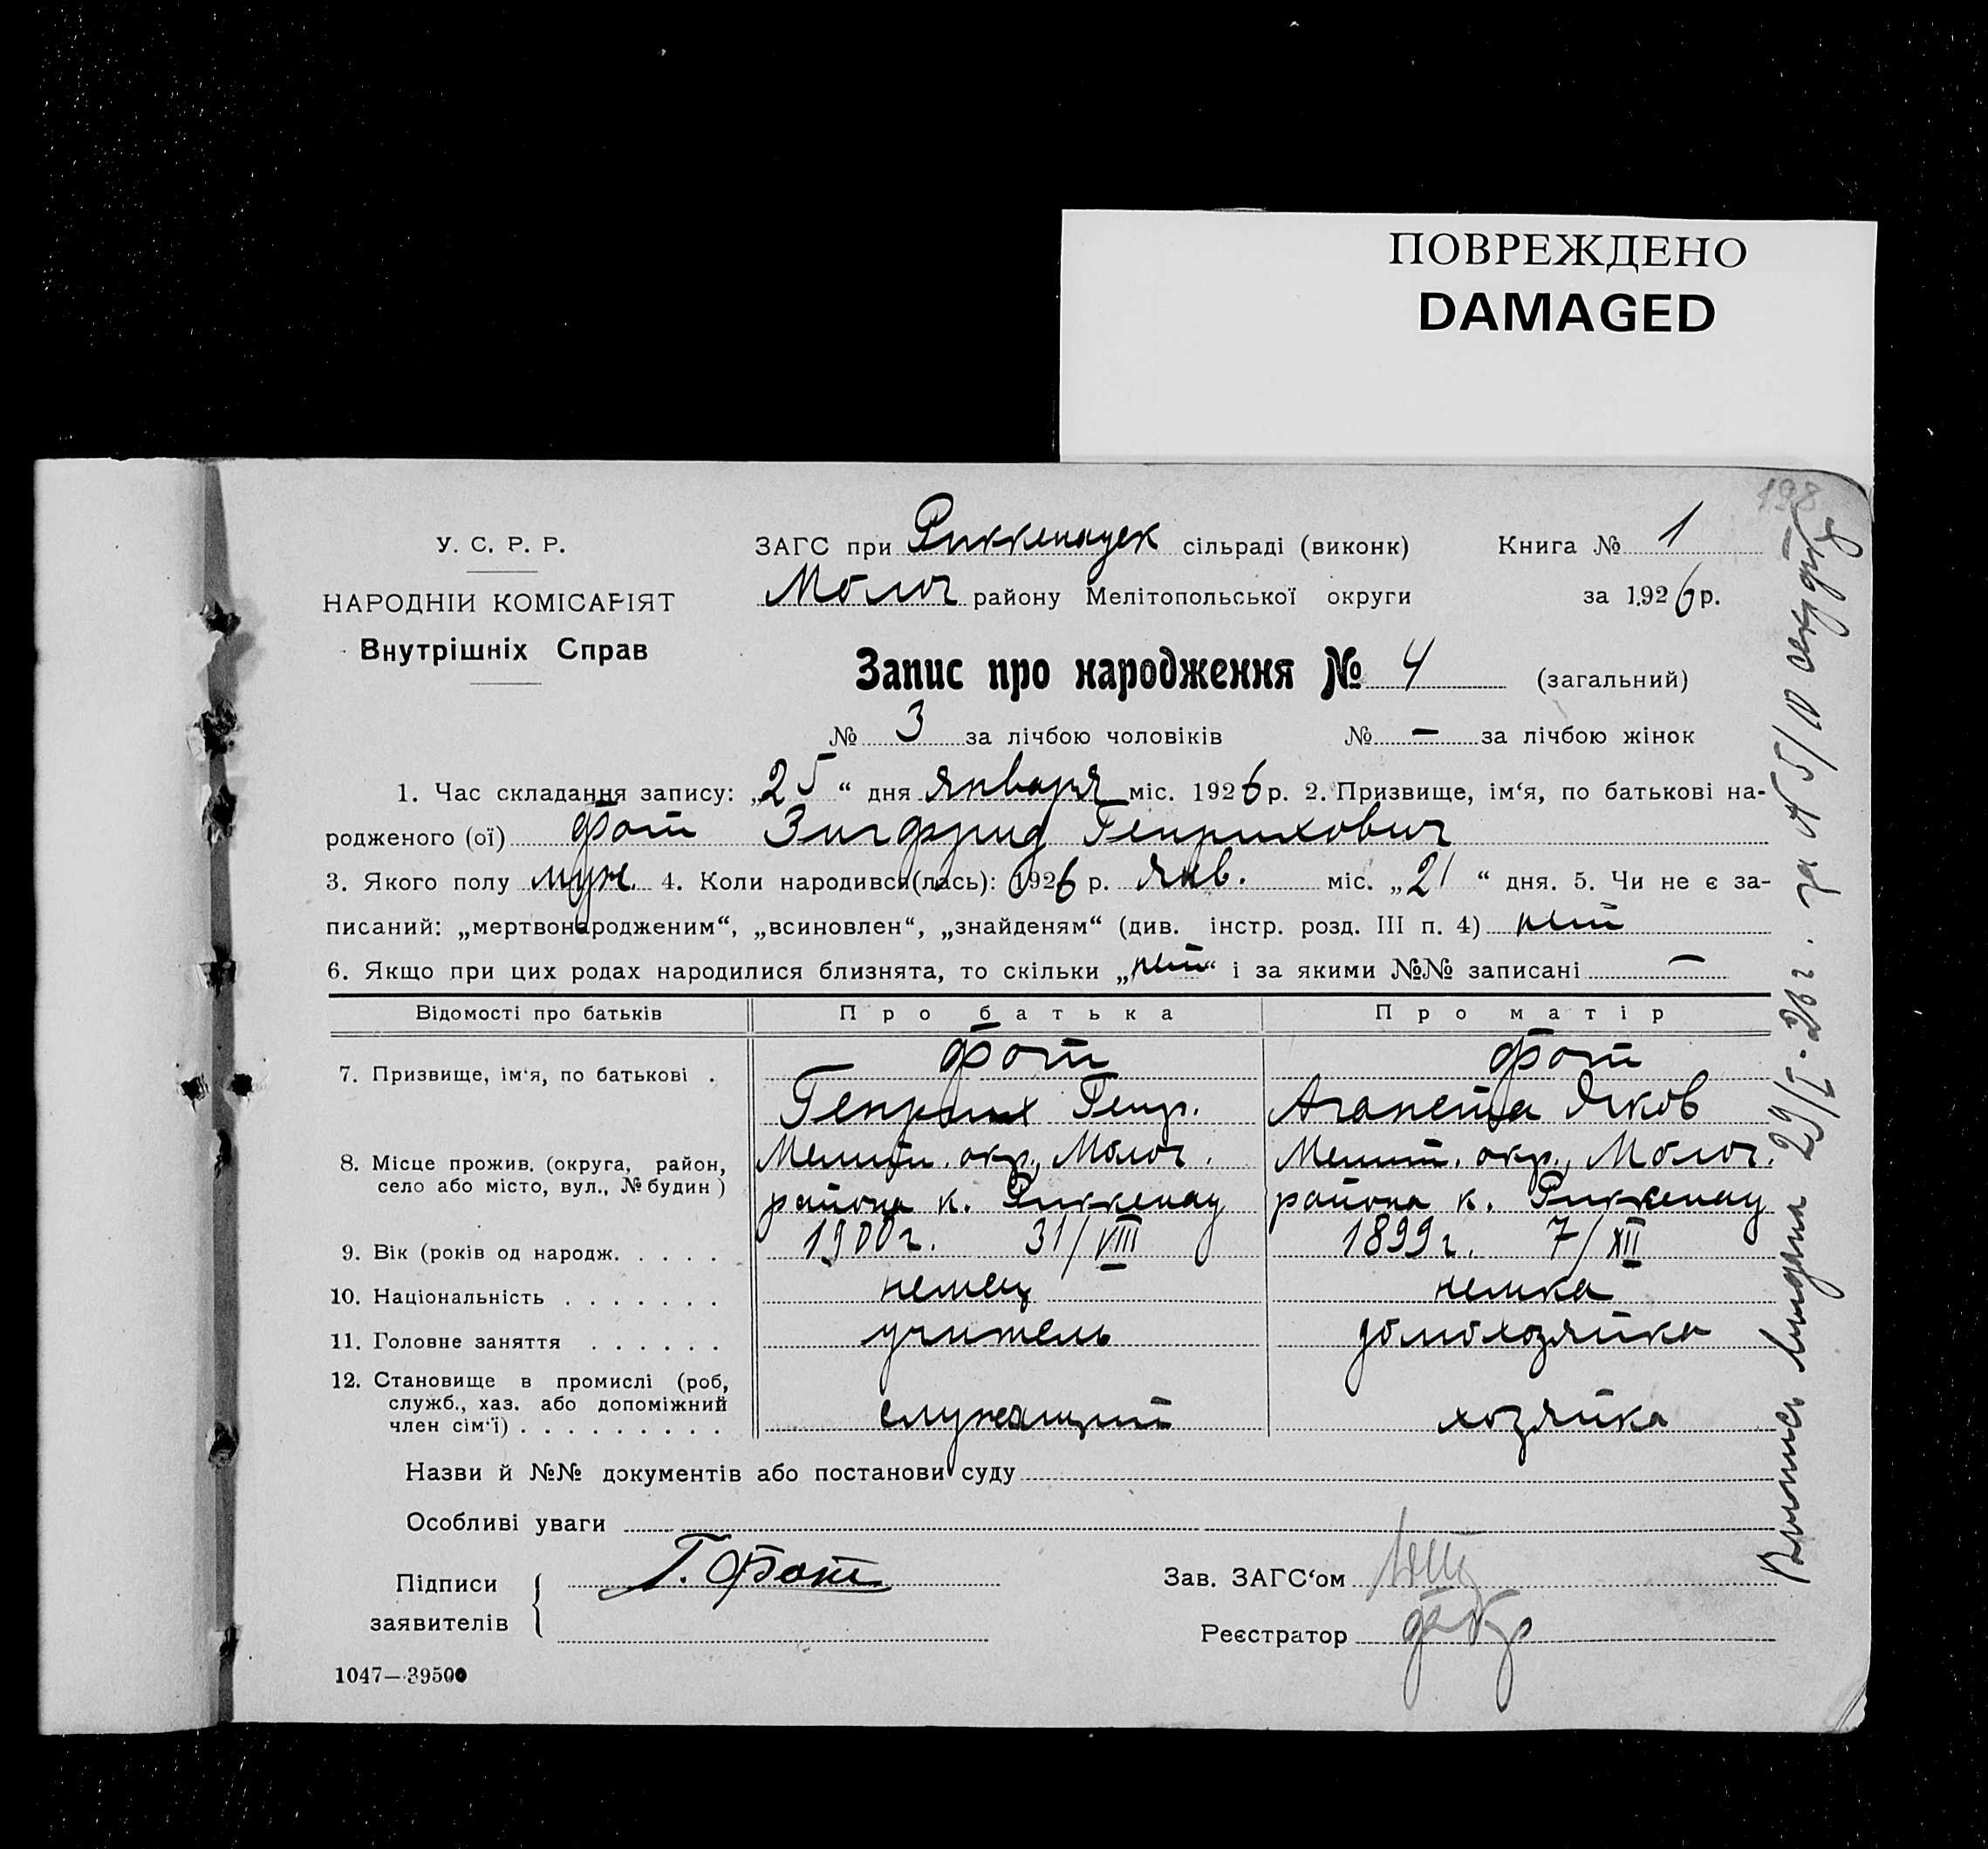 ПОВРЕЖДЕНО
DAMAGED
198
У. С. Р. Р.
НАРОДНІЙ КОМІСАРІЯТ
Внутрішніх Справ
ЗАГС при Риккенауск сільраді (виконк) Книга № 1
Молоч району Мелітопольської округи за 1926 р.
Запис про народження № 4 (загальний)
№ 3 за лічбою чоловіків № — за лічбою жінок
1. Час складання запису: „25“ дня января міс. 1926 р. 2. Призвище, ім‘я, по батькові на-
родженого (ої) Фот Зигфрид Генрихович
3. Якого полу муж. 4. Коли народився(лась): 1926 р. янв. міс. „21“ дня. 5. Чи не є за-
писаний: „мертвонародженим“, „всиновлен“, „знайденям“ (див. інстр. розд. III п. 4) нет
6. Якщо при цих родах народилися близнята, то скільки „нет“ і за якими №№ записані —
Відомості про батьків Про батька Про матір
7. Призвище, ім‘я, по батькові . Фот Фот
Генрих Генр. Аганета Яков
8. Місце прожив. (округа, район, село або місто, вул., № будин ) Мелит. окр., Молоч. Мелит. окр., Молоч.
района к. Риккенау района к. Риккенау
9. Вік (років од народж. . . . . 1900 г. 31/VIII 1899 г. 7/XII
10. Національність . . . . . . . немец немка
11. Головне заняття . . . . . . учитель домохозяйка
12. Становище в промислі (роб, служб., хаз. або допоміжний член сім‘ї) . . . . . . . . . служащий хозяйка
Назви й №№ документів або постанови суду
Особливі уваги
Підписи заявителів { Г. Фот
Зав. ЗАГС‘ом
Реєстратор
1047—39500
Выпись выдана 29/I-26 г. за № 5/10